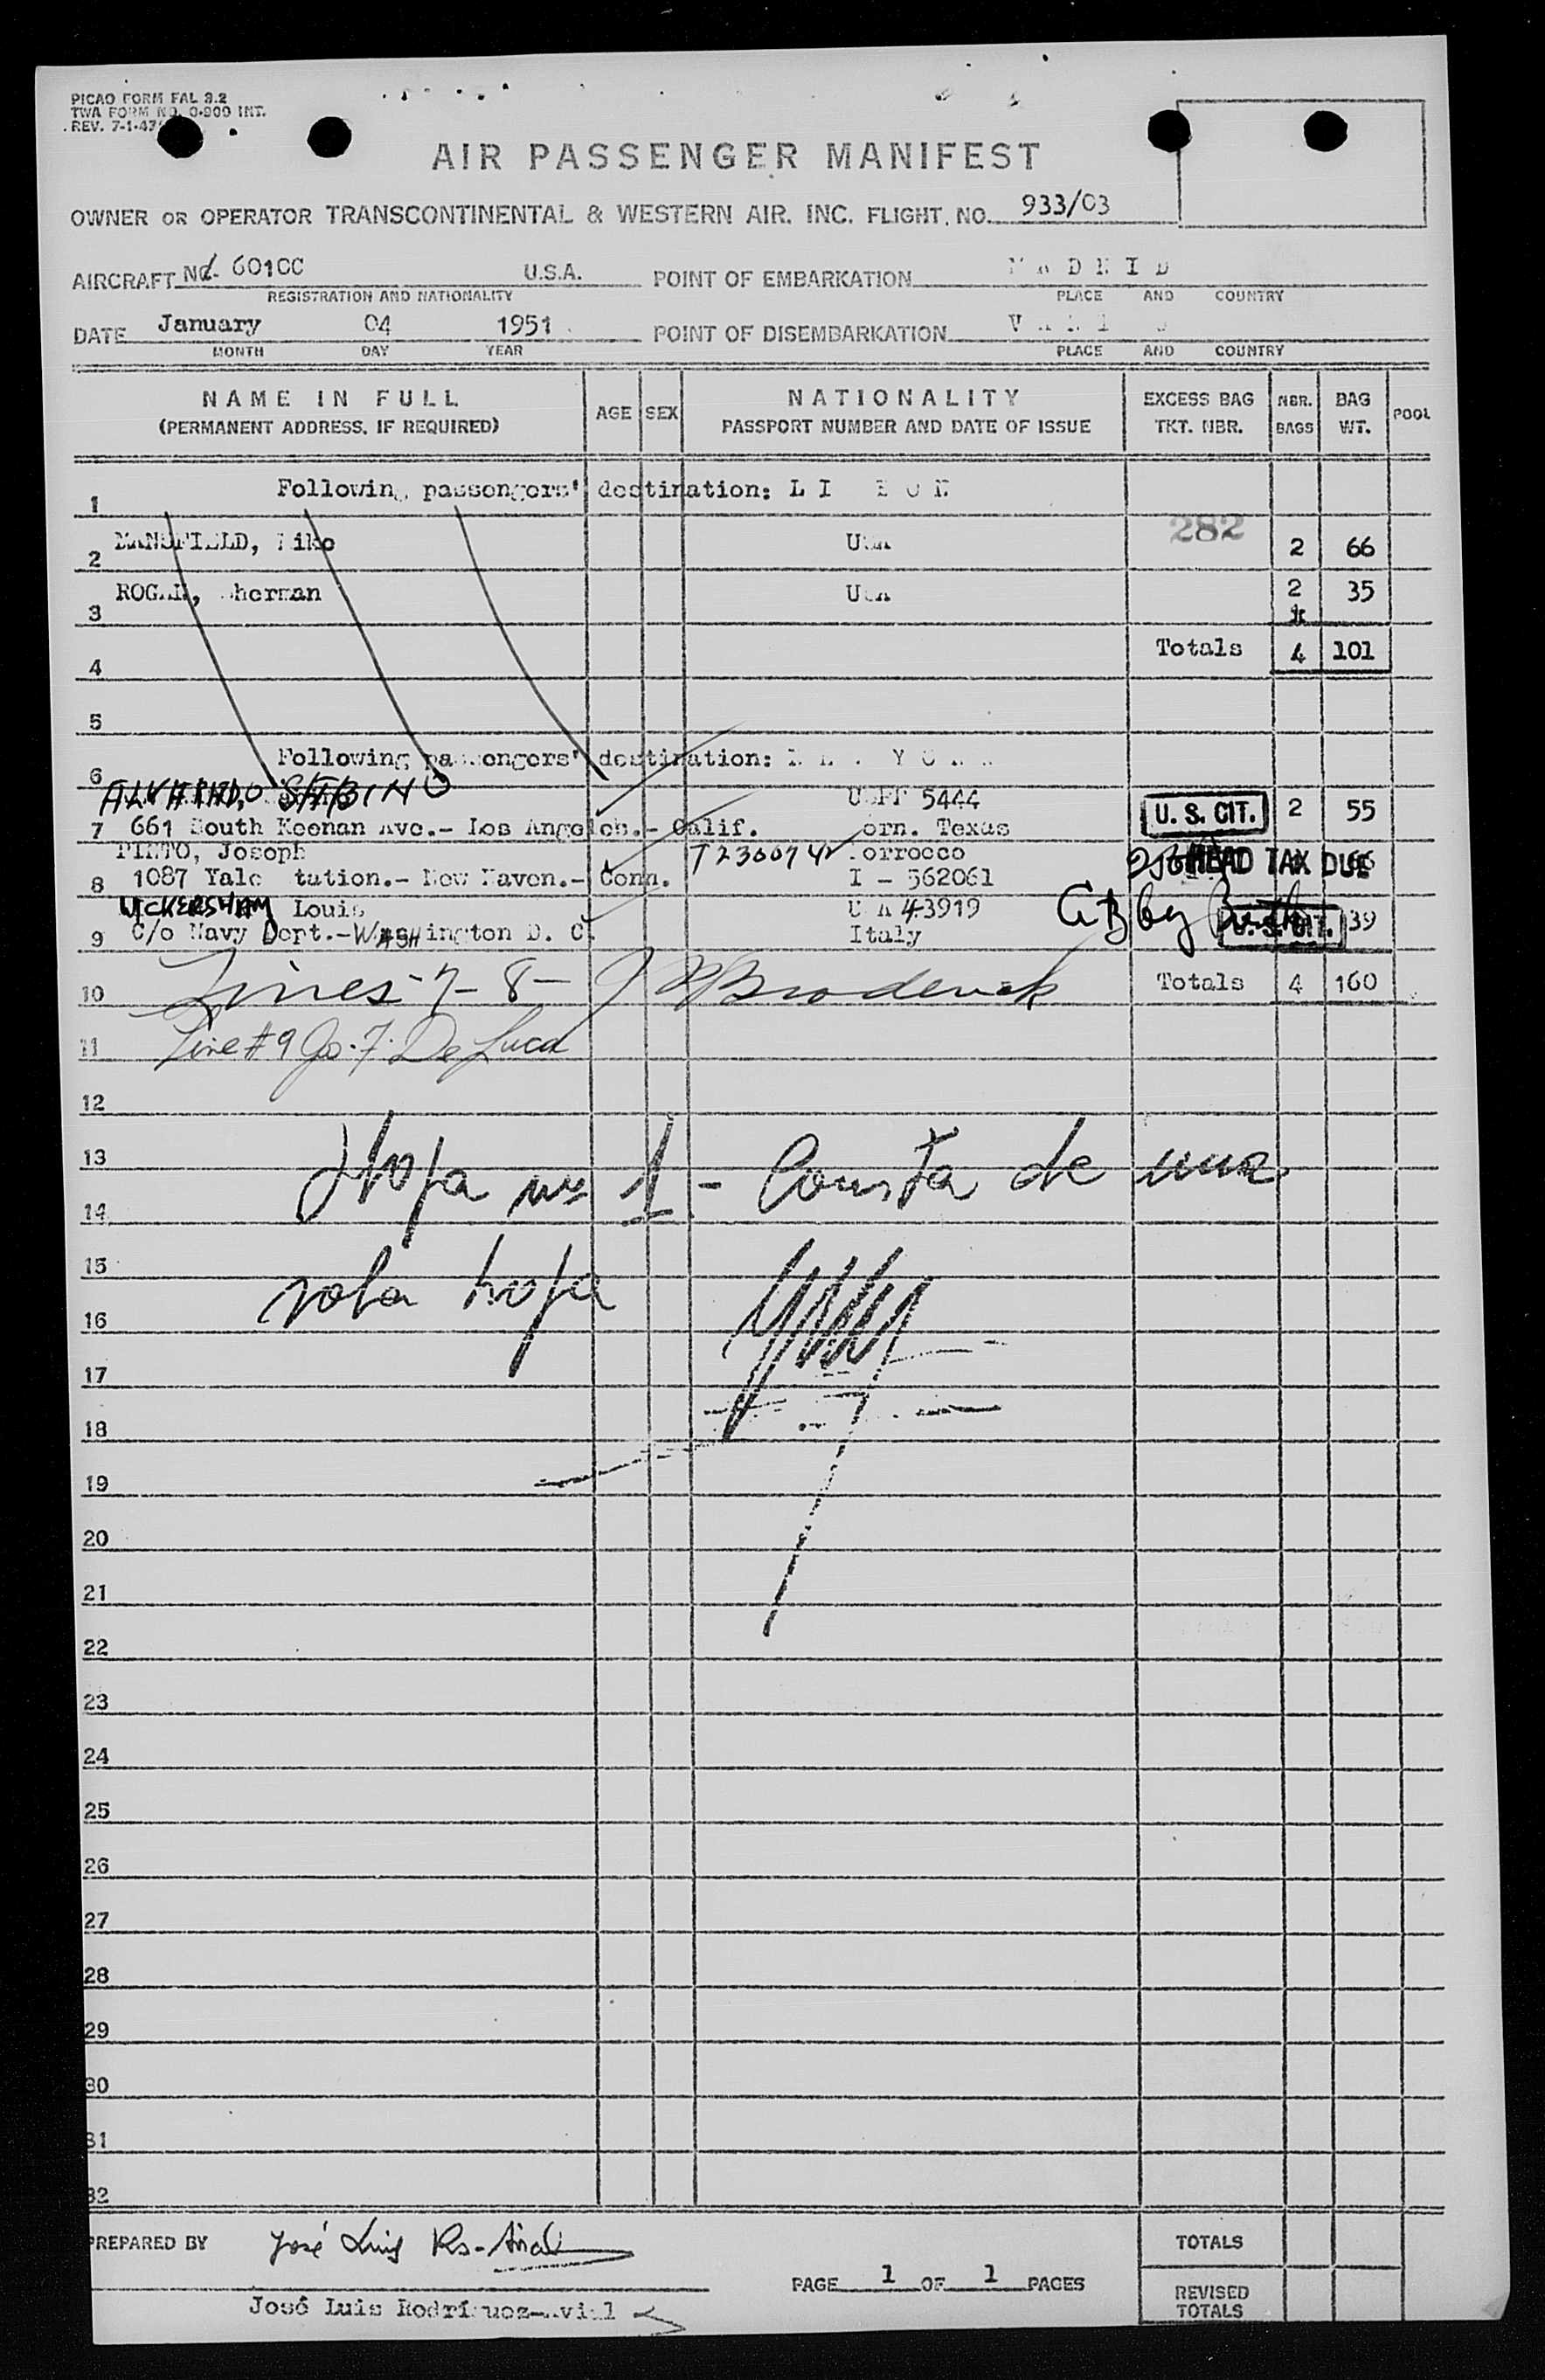 PICAO FORM FAL 3.2
TWA FORM NO. 0-900 INT.
REV. 7-1-47
AIR PASSENGER MANIFEST
OWNER OR OPERATOR TRANSCONTINENTAL & WESTERN AIR. INC. FLIGHT. NO. 933/03
AIRCRAFT 6010C U.S.A. POINT OF EMBARKATION MADRID
REGISTRATION AND NATIONALITY PLACE AND COUNTRY
DATE January 04 1951 POINT OF DISEMBARKATION
MONTH DAY YEAR PLACE AND COUNTRY
NAME IN FULL AGE SEX NATIONALITY EXCESS BAG NBR. BAG POOL
(PERMANENT ADDRESS, IF REQUIRED) PASSPORT NUMBER AND DATE OF ISSUE TKT. NBR. BAGS WT.
1 Following passengers' destination: LISBON
2 MANSFIELD, Mike USA 282 2 66
3 Sherman USA 2 35
4 Totals 4 101
5
6 Following passengers' destination: NEW YORK
ALVARADO SABINO 5444 U. S. CIT. 2 55
7 661 South Keenan Ave.- Los Angeles.- Calif. Born. Texas
PINTO, Joseph T230074 Morrocco HEAD TAX DUE 66
8 1087 Yale Station.- New Haven.- Conn. I - 562061
WICKERSHAM Louis 43919 U. S. CIT. 39
9 C/o Navy Dept.-Washington D. C. Italy
10 Lines-7-8- Broderick Totals 4 160
11 Line #9 Jo. F. De Luca
12
13 Hoja nº 1 - Consta de una
14
15 sola hoja
16
17
18
19
20
21
22
23
24
25
26
27
28
29
30
31
32
PREPARED BY José Luis TOTALS
PAGE 1 OF 1 PAGES
José Luis Rodríguez-Avial REVISED
TOTALS